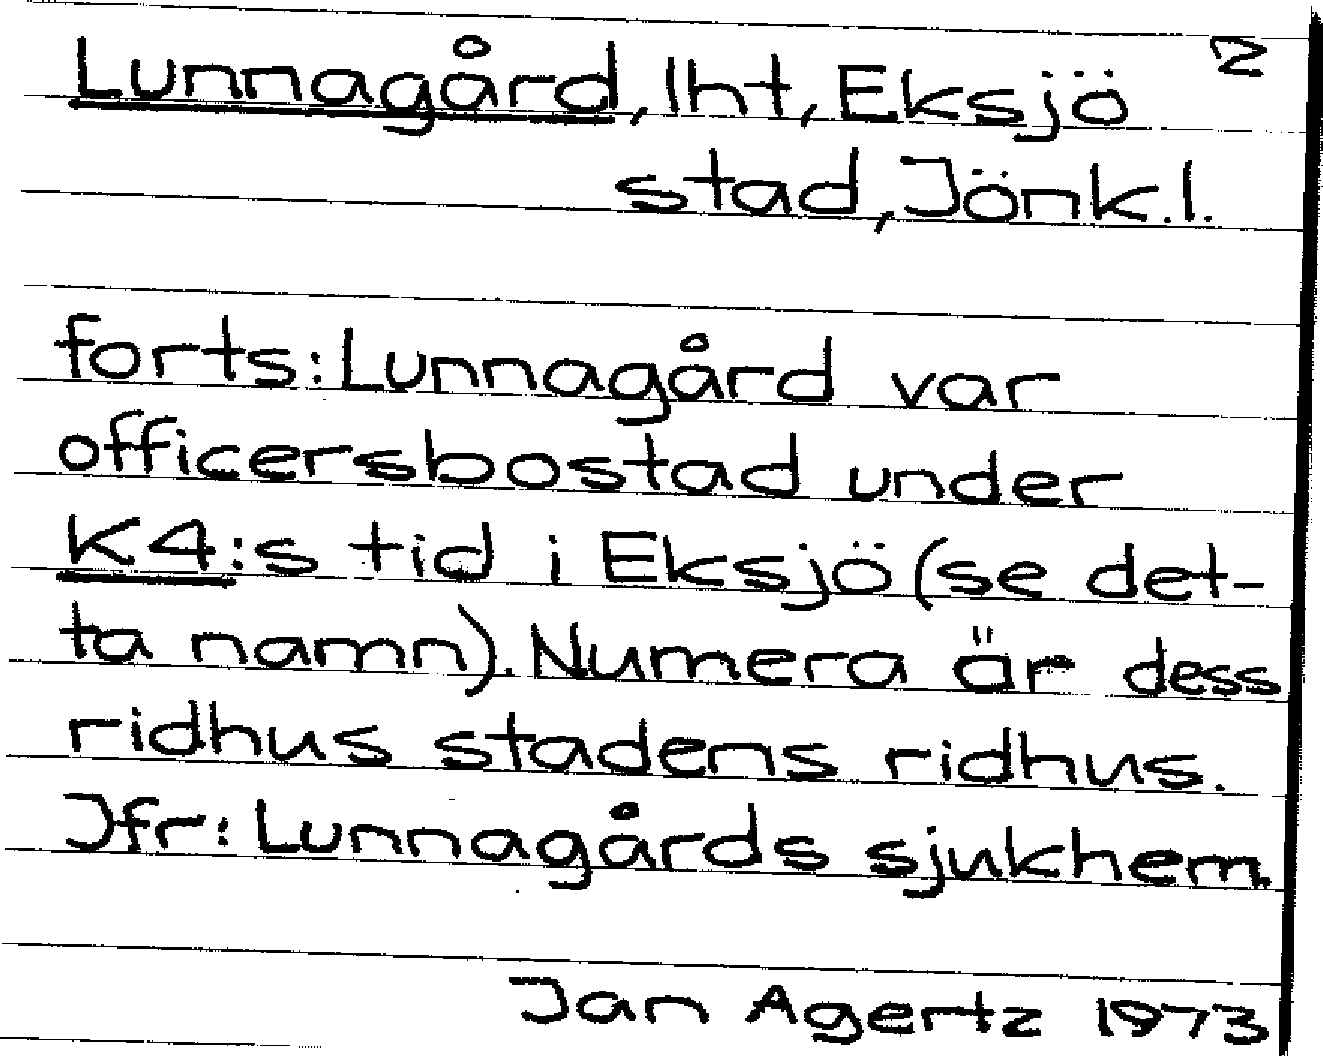 Lunnagård, lht, Eksjö 2
stad, Jönk.l.
forts: Lunnagård var
officersbostad under
K4:s tid i Eksjö (se det-
ta namn). Numera är dess
ridhus stadens ridhus.
Jfr: Lunnagårds sjukhem.
Jan Agertz 1973